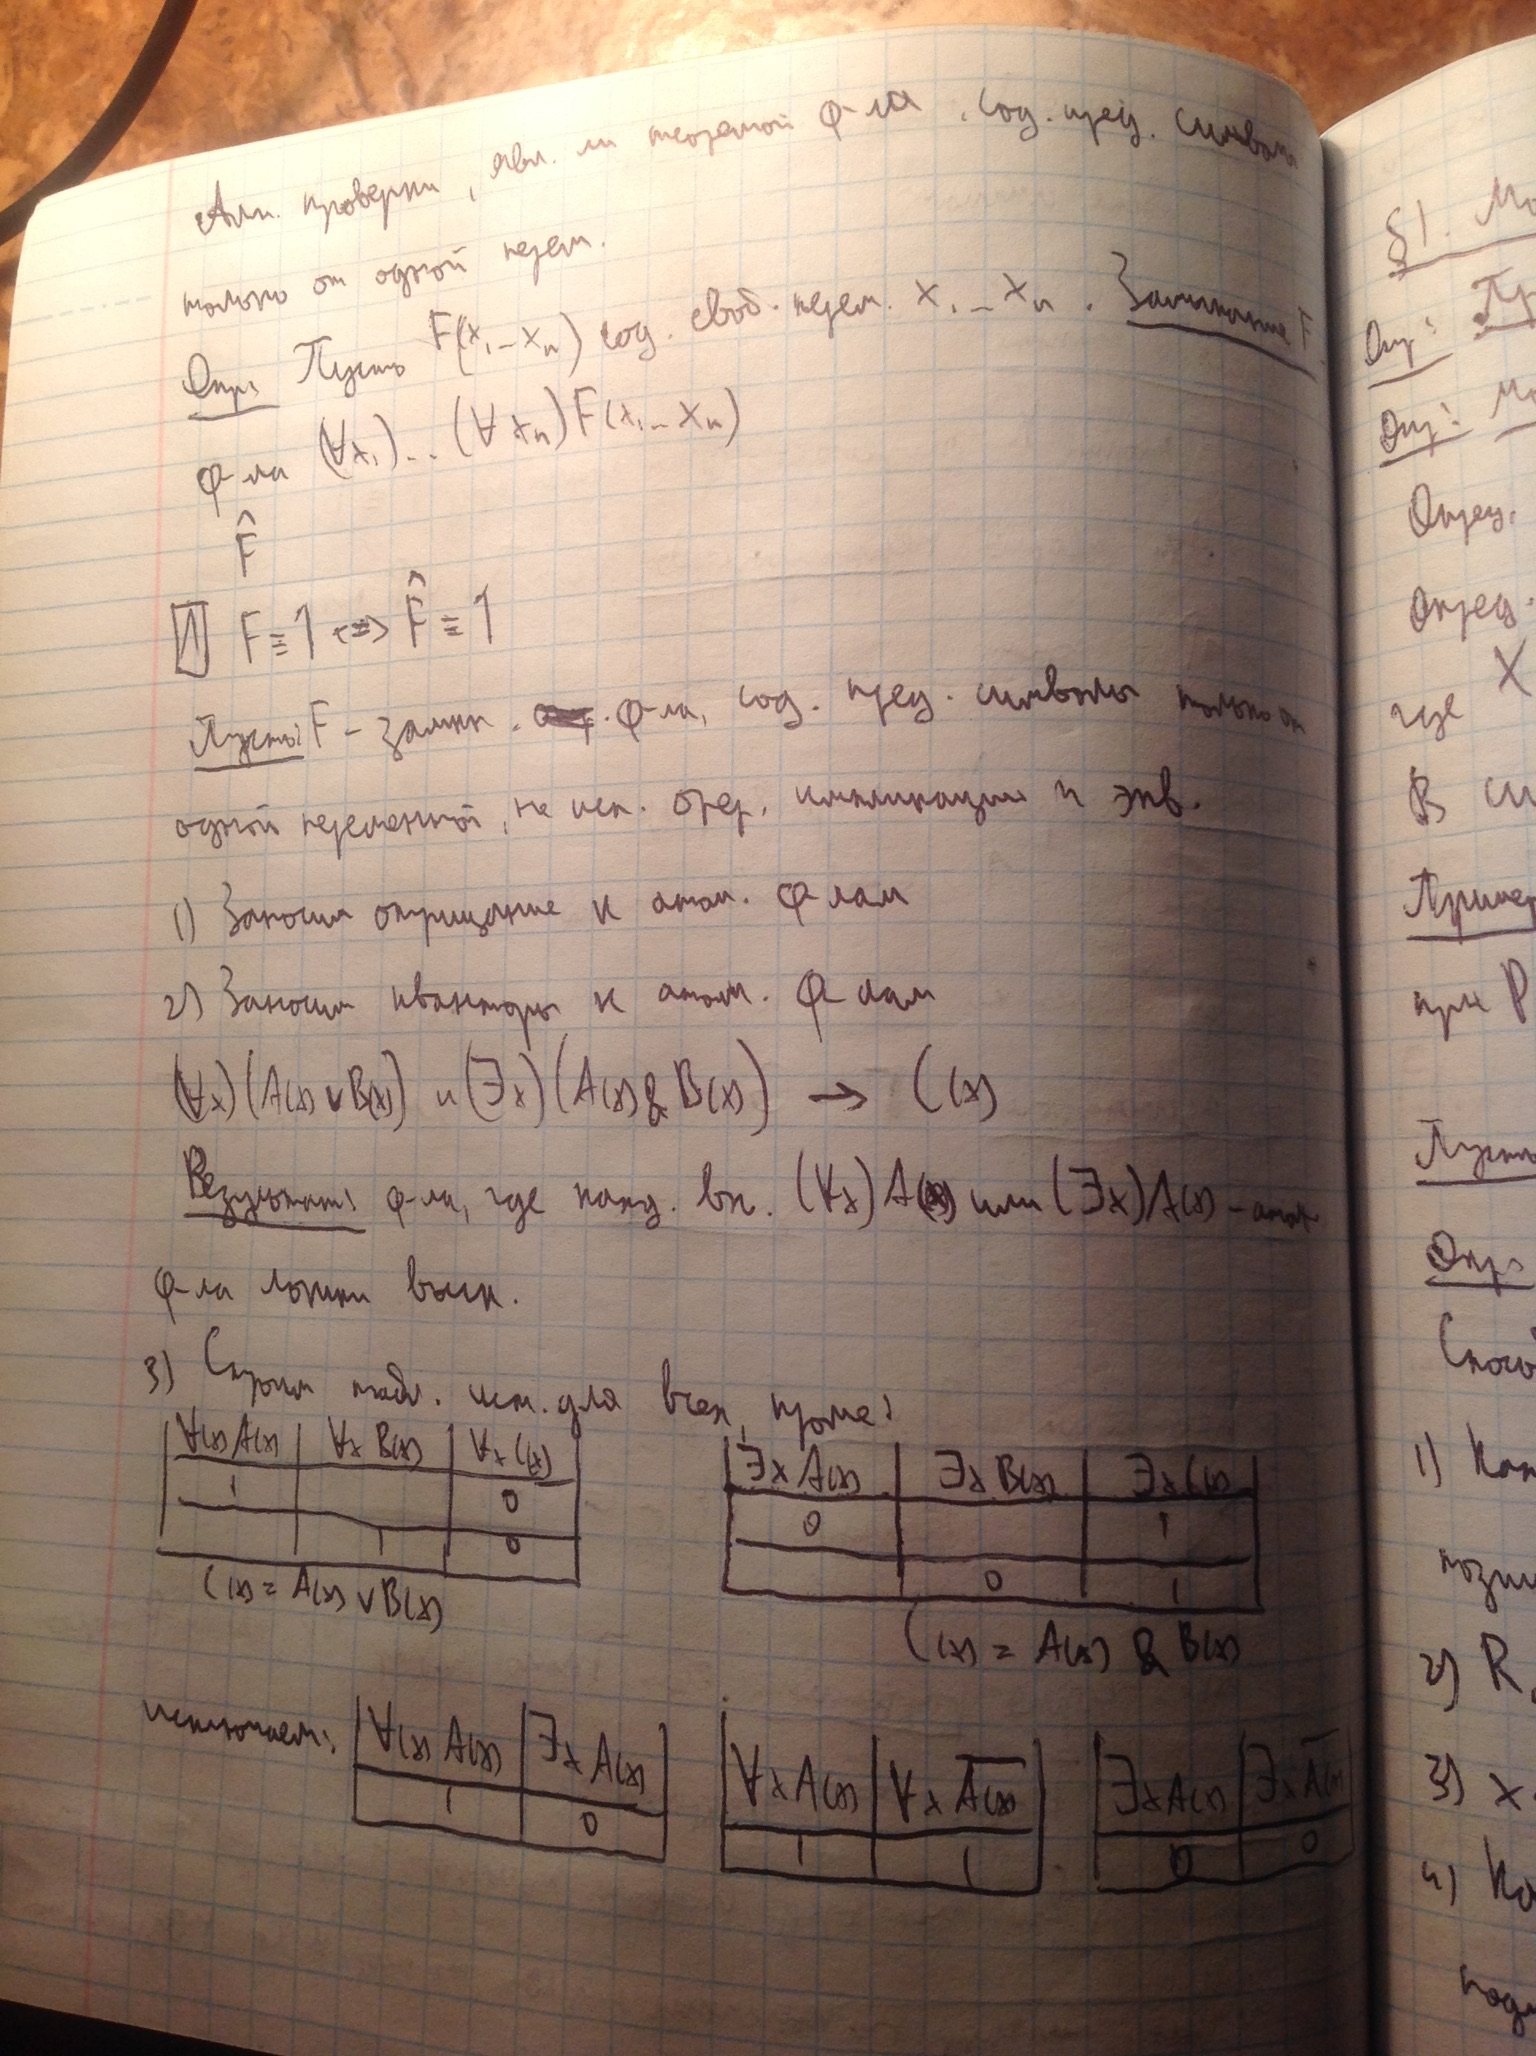 Алг. проверки, явл. ли теоремой ф-ла, сод. пред. символы
только от одной перем.
Опр: Пусть F(x₁–xₙ) сод. своб. перем. x₁–xₙ. Замыкание F
ф-ла (∀x₁)..(∀xₙ)F(x₁–xₙ)
F̂
1 F≡1 <=> F̂≡1
Пусть: F – замкн. ф-ла, сод. пред. символы только от
одной переменной, не исп. опер. импликации и экв.
1) Заносим отрицание к атом. ф-лам
2) Заносим кванторы к атом. ф-лам
(∀x)(A(x)∨B(x)) и (∃x)(A(x)&B(x)) → C(x)
Результат: ф-ла, где кажд. вх. (∀x)A(x) или (∃x)A(x) – атом
ф-ла логики выск.
3) Строим табл. ист. для всех, кроме:
∀(x)A(x) ∀x B(x) ∀x C(x)
1 0
1 0
C(x) = A(x)∨B(x)
∃x A(x) ∃x B(x) ∃x C(x)
0 1
0 1
C(x) = A(x) & B(x)
исключаем:
∀(x)A(x) ∃x A(x)
1 0
∀x A(x) ∀x A̅(̅x̅)̅
1 1
∃x A(x) ∃x A̅(̅x̅)̅
0 0
§1. Мо
Опр: Пр
Опр: Мо
Опред.
Опред.
где X
В си
Пример
при P
Пусть
Опр:
Спосо
1)
позиц
2) R
3) x
4)